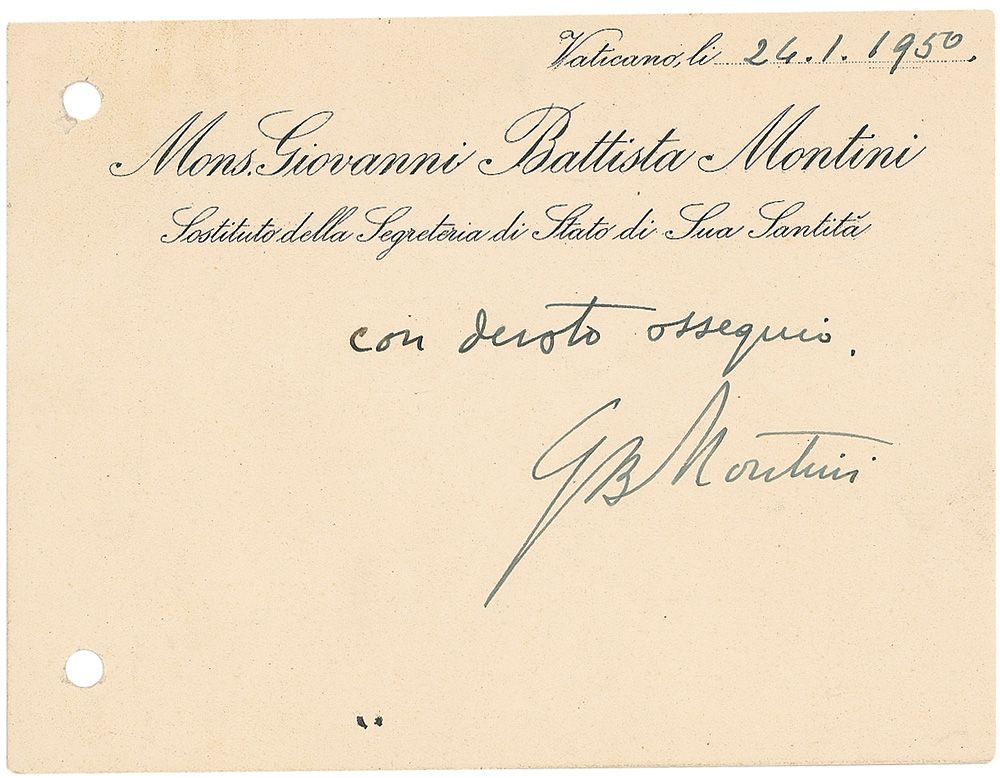 Vaticano, li 24.1.1950.
Mons. Giovanni Battista Montini
Sostituto della Segreteria di Stato di Sua Santità
con devoto ossequio.
GB Montini